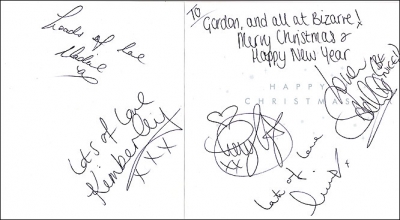 Loads of love
TO
Gordon, and all at Bizarre!
Merry Christmas &
Happy New Year
HAPPY
CHRISTMAS
Lots of love
Kimberley
xxx
xx
Lots of love